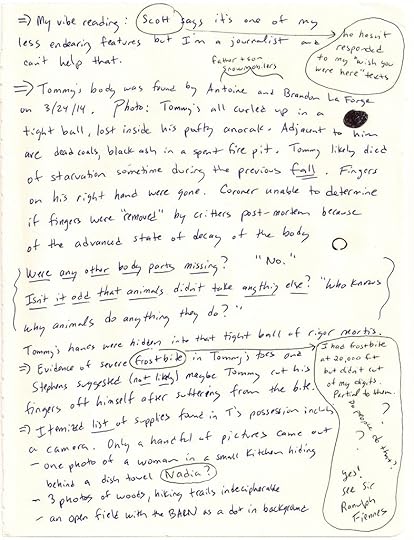 ⇒ My vibe reading: Scott says it's one of my
less endearing features but I'm a journalist and
can't help that.
he hasn't
responded
to my "wish you
were here" texts
father + son
snowmobilers
⇒ Tommy's body was found by Antoine and Brandon La Forge
on 3/24/14. Photo: Tommy's all curled up in a
tight ball, lost inside his puffy anorak. Adjacent to him
are dead coals, black ash in a spent fire pit. Tommy likely died
of starvation sometime during the previous fall. Fingers
on his right hand were gone. Coroner unable to determine
if fingers were "removed" by critters post-mortem because
of the advanced state of decay of the body
Were any other body parts missing? "No."
Isn't it odd that animals didn't take anything else? "Who knows
why animals do anything they do?"
Tommy's hands were hidden into that tight ball of rigor mortis.
⇒ Evidence of severe frostbite in Tommy's toes and
Stephens suggested (not likely) maybe Tommy cut his
fingers off himself after suffering from the bite.
I had frostbite
at 20,000 ft
but didn't cut
off my digits.
Partial to them.
Do people do that?
?
?
Yes!
see Sir
Ranulph
Fiennes
⇒ Itemized list of supplies found in T's possession includes
a camera. Only a handful of pictures came out
- one photo of a woman in a small kitchen hiding
behind a dish towel Nadia?
- 3 photos of woods, hiking trails indecipherable
- an open field with the BARN as a dot in background